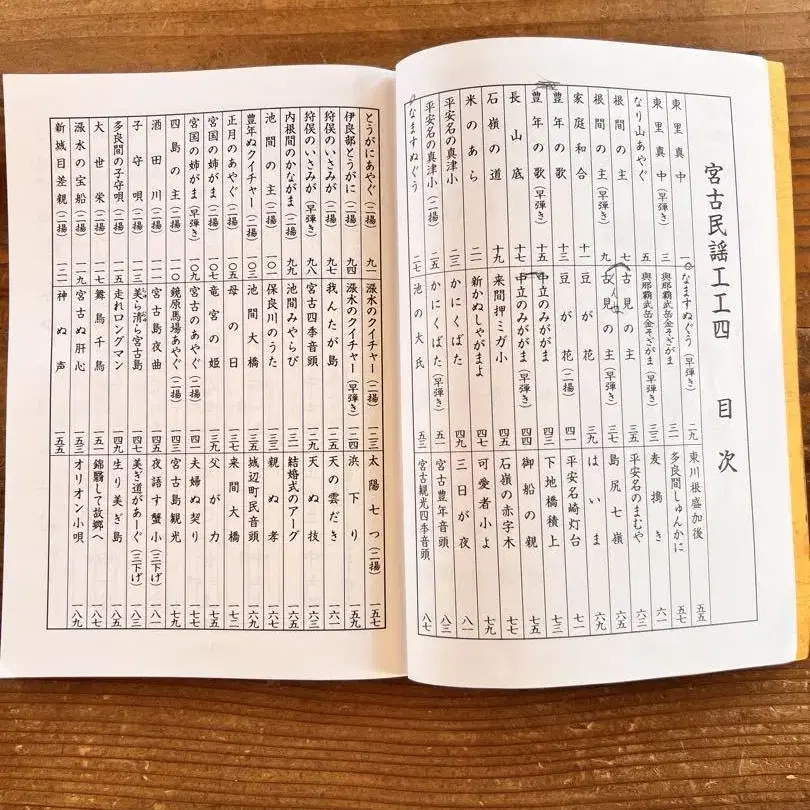 宮古民謡工工四　目次
東里真中 一
東里真中(早弾き) 三
なり山あやぐ 五
根間の主
根間の主(早弾き) 九
家庭和合 十一
豊年の歌 十三
豊年の歌(早弾き) 十五
長山底 十七
石嶺の道 十九
米のあら 二一
平安名の真津小 二三
平安名の真津小(二揚) 二五
なますぬぐう(二揚) 二七
なますぬぐう(早弾き) 二九
與那覇武岳金そざがま 三一
與那覇武岳金そざがま(早弾き) 三三
古見の主 三五
古見の主(早弾き) 三七
豆が花 三九
豆が花(二揚) 四一
中立のみががま
中立のみががま(早弾き) 四四
来間押ミガ小
新かぬしゃがまよ 四七
かにくばた 四九
かにくばた(早弾き) 五一
池の大氏 五三
東川根盛加後 五五
多良間しゅんかに 五七
麦搗き 六一
平安名のまむや
島尻七嶺
はいま 六九
平安名崎灯台 七一
下地橋積上 七三
御船の親 七五
石嶺の赤字木 七七
可愛者小よ 七九
三日が夜 八一
宮古豊年音頭
宮古観光四季音頭 八七
とうがにあやぐ(二揚) 九一
伊良部とうがに(二揚) 九四
狩俣のいさみが 九七
狩俣のいさみが(早弾き) 九八
内根間のかながま(二揚) 九九
池間の主 一〇一
豊年ぬクイチャー(二揚) 一〇三
正月のあやぐ(二揚) 一〇五
宮国の姉がま(二揚) 一〇七
宮国の姉がま(早弾き) 一〇九
四島の主(二揚) 一一〇
酒田川(二揚) 一一一
子守唄(二揚) 一一三
多良間の子守唄(二揚) 一一五
大世栄(二揚) 一一七
漲水の宝船(二揚) 一一九
新城目差親(二揚) 一二一
漲水のクイチャー(二揚) 一二三
漲水のクイチャー(早弾き) 一二四
我んたが島
宮古四季音頭 一二九
池間みやらび 一三一
保良川のうた 一三三
池間大橋 一三五
母の日 一三七
竜宮の姫 一三九
宮古のあやぐ(二揚) 一四一
鏡原馬場あやぐ(二揚) 一四三
宮古島夜曲
美ら清ら宮古島 一四七
走れロングマン 一四九
舞鳥千鳥 一五一
宮古ぬ肝心 一五三
神ぬ声 一五五
太陽七つ(二揚) 一五七
浜下り 一五九
天の雲だき 一六一
天ぬ技 一六三
結婚式のアーグ 一六五
親ぬ孝 一六七
城辺町民音頭 一六九
来間大橋 一七二
父が力 一七五
夫婦ぬ契り 一七七
宮古島観光 一七九
夜語す蟹小(三下げ) 一八一
美ぎ道があーぐ(三下げ) 一八三
生り美ぎ島 一八五
錦翳して故郷へ 一八七
オリオン小唄 一八九